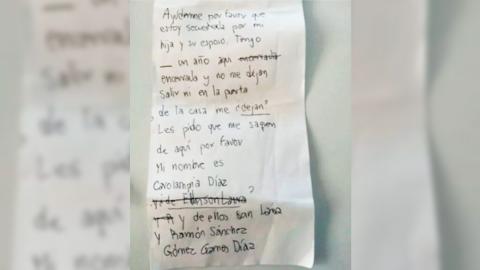 Ayúdenme por favor que
estoy secuestrada por mi
hija y su esposo. Tengo
— un año aqui encerrada
encerrada y no me dejan
Salir ni en la puerta
de la casa me dejan"
Les pido que me saquen
de aquí por favor
Mi nombre es
Díaz
y de ellos son
y Ramón Sánchez
Gómez Díaz